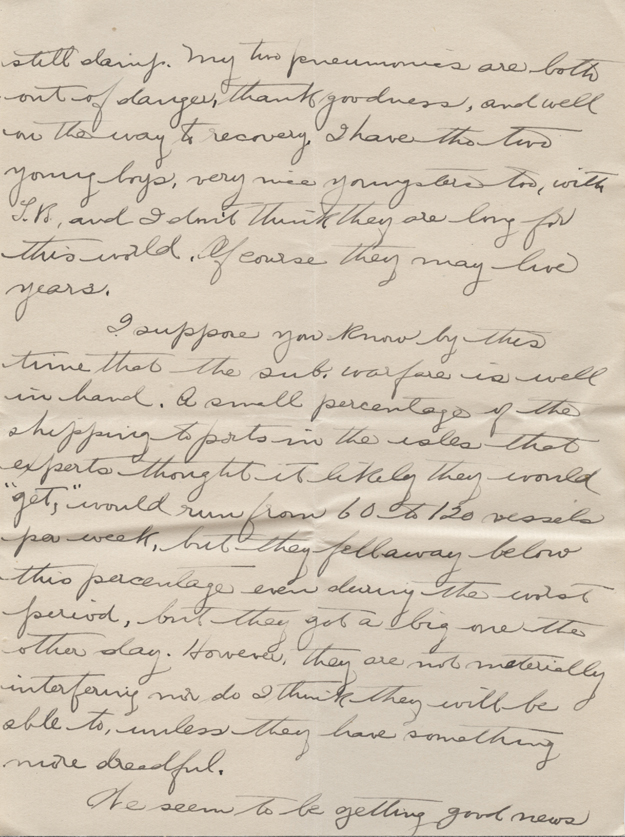 still damp. My two pneumonias are both
out of danger, thank goodness, and well
on the way to recovery. I have the two
young boys, very nice youngsters too, with
T.B., and I don't think they are long for
this world. Of course they may live
years.
I suppose you know by this
time that the sub. warfare is well
in hand. A small percentage of the
shipping to ports in the isles that
experts thought it likely they would
"get," would run from 60 to 120 vessels
per week, but they fell away below
this percentage even during the worst
period, but they got a big one the
other day. However, they are not materially
interfering nor do I think they will be
able to, unless they have something
more dreadful.
We seem to be getting good news